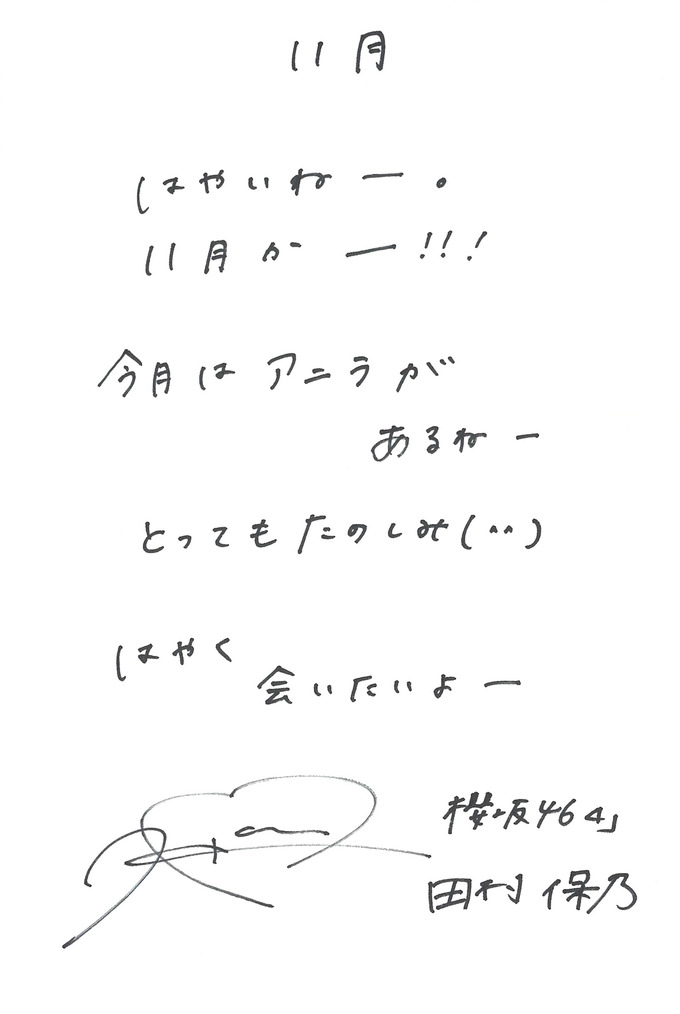 11月
はやいねー。
11月かー!!!
今月はアニラが
あるねー
とってもたのしみ(^^)
はやく
会いたいよー
櫻坂46
田村保乃